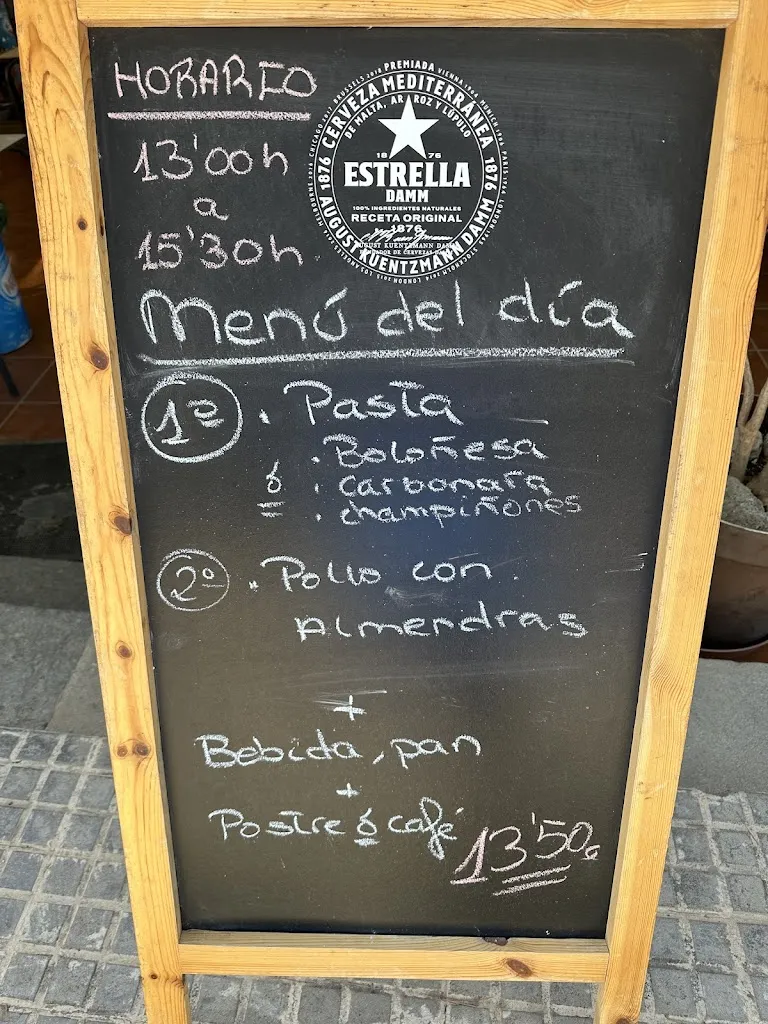 HORARIO
13'00h
a
15'30h
PREMIADA
CERVEZA MEDITERRÁNEA
DE MALTA, ARROZ Y LÚPULO
1876
1876
ESTRELLA
DAMM
100% INGREDIENTES NATURALES
RECETA ORIGINAL
1876
AUGUST KUENTZMANN DAMM
Menú del día
1º . Pasta
. Boloñesa
ó . carbonara
. champiñones
2º . Pollo con
Almendras
+
Bebida, pan
+
Postre ó café
13'50€